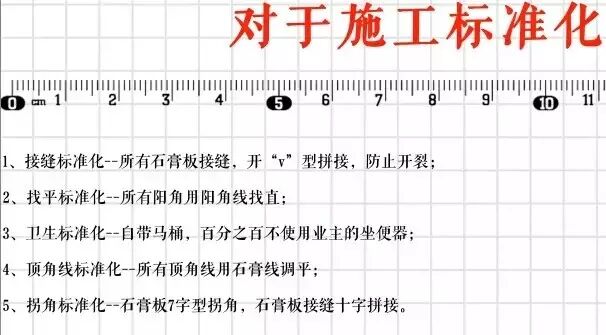 对于施工标准化
0 cm 1 2 3 4 5 6 7 8 9 10 11
1、接缝标准化--所有石膏板接缝，开“v”型拼接，防止开裂；
2、找平标准化--所有阳角用阳角线找直；
3、卫生标准化--自带马桶，百分之百不使用业主的坐便器；
4、顶角线标准化--所有顶角线用石膏线调平；
5、拐角标准化--石膏板7字型拐角，石膏板接缝十字拼接。